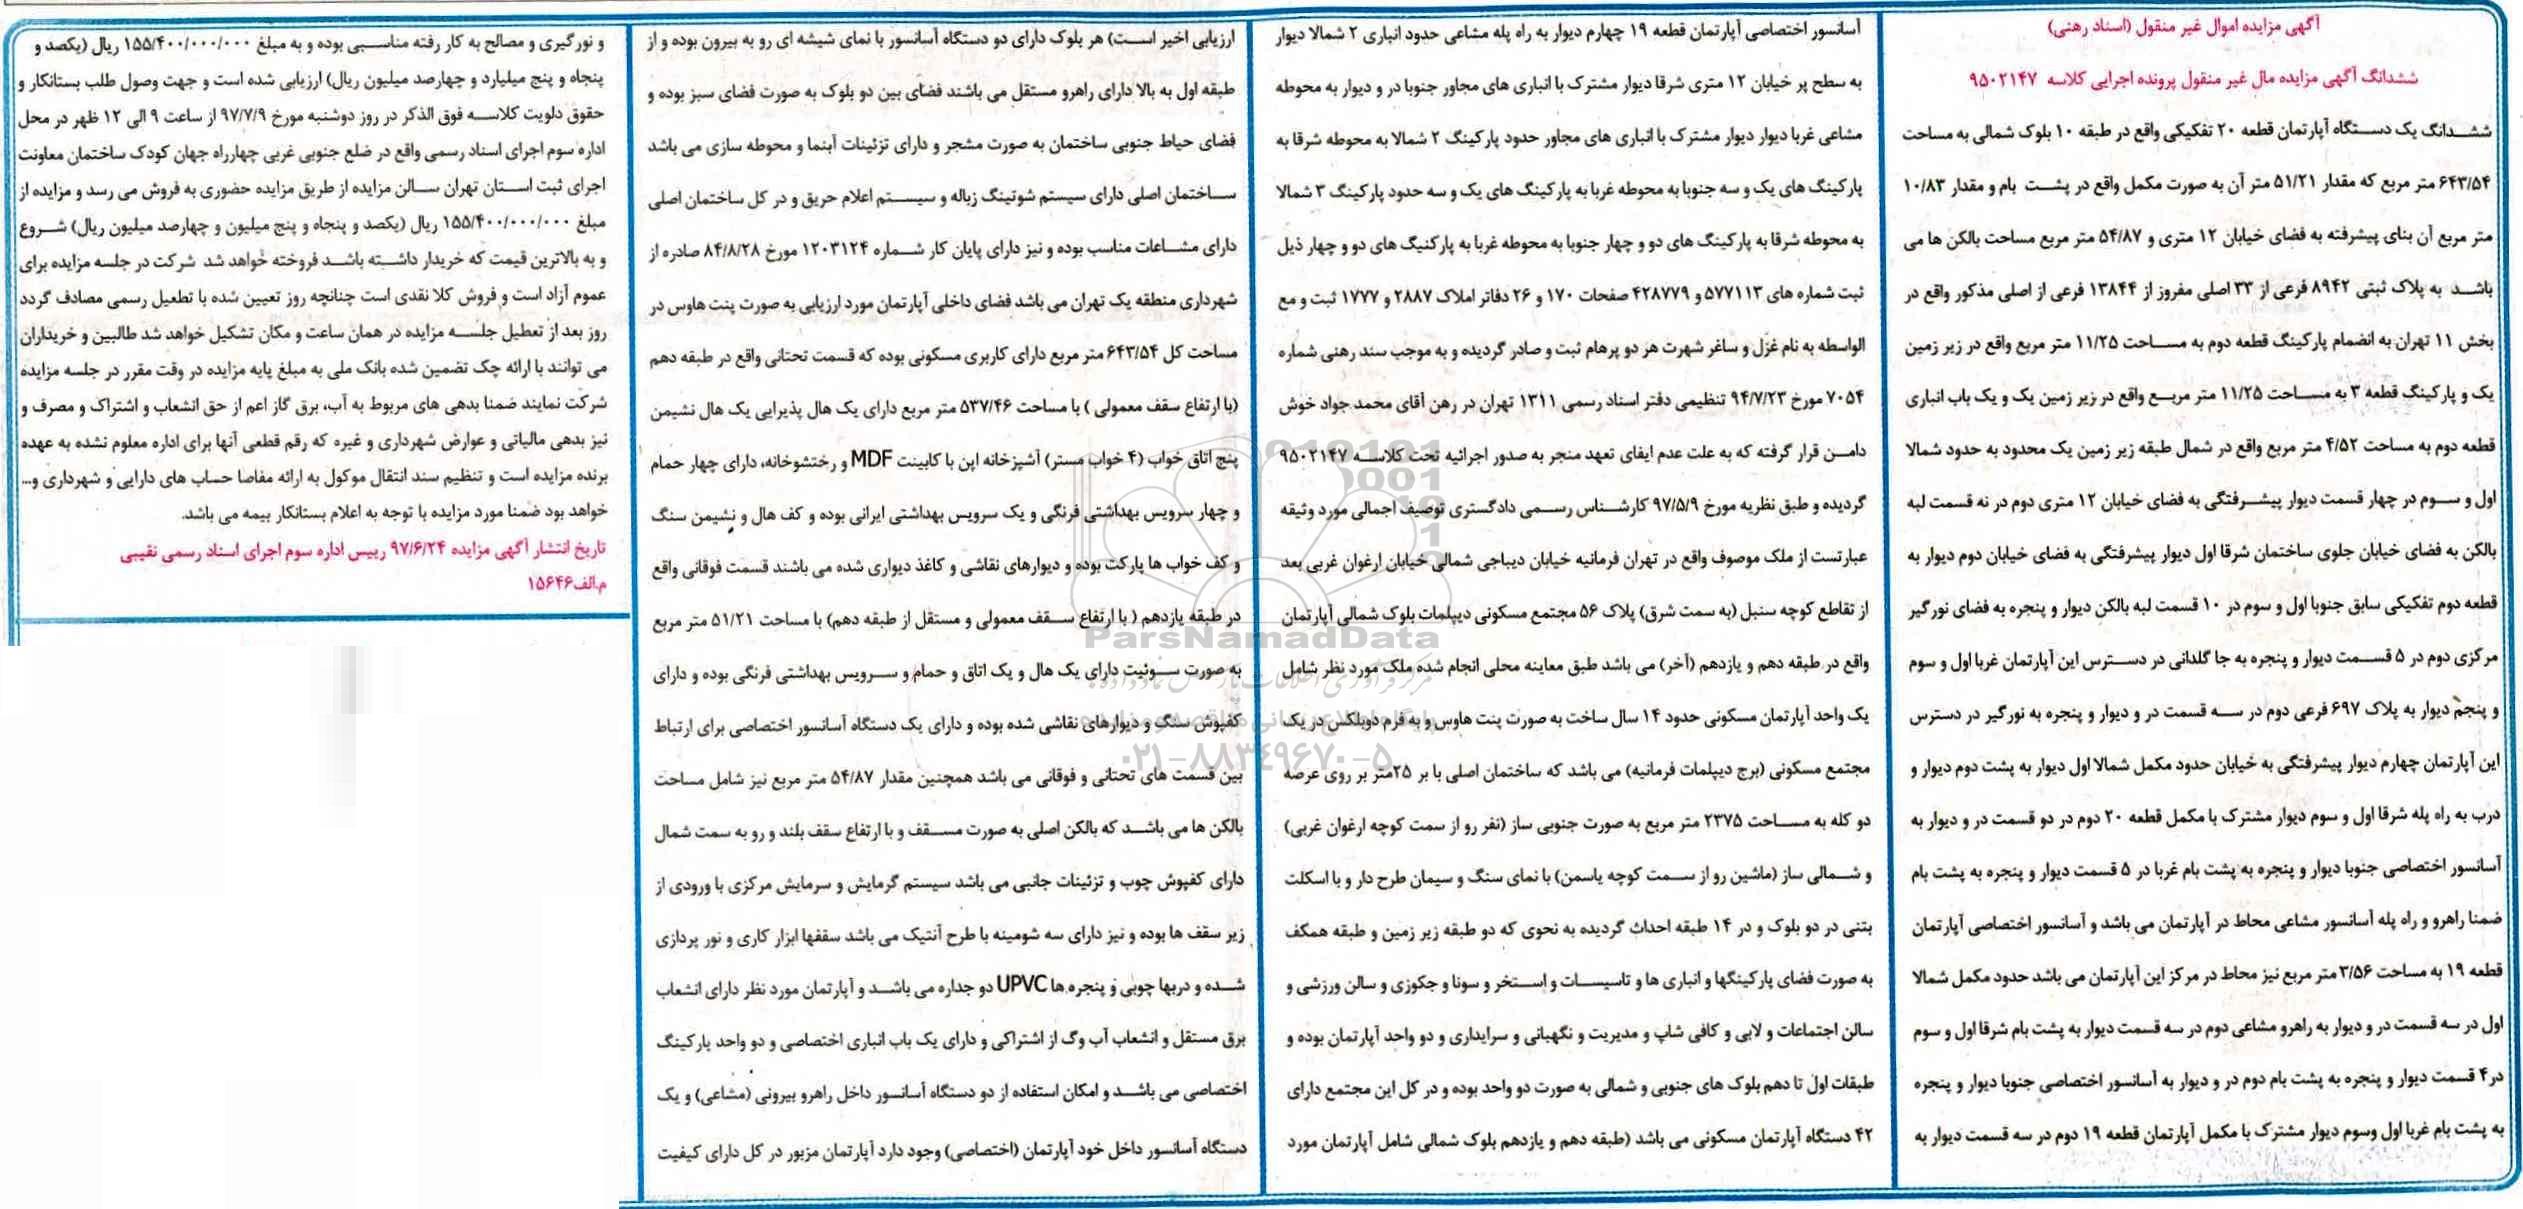 آگهی مزایده اموال غیر منقول (اسناد رهنی)
ششدانگ آگهی مزایده مال غیر منقول پرونده اجرایی کلاسه ۹۵۰۲۱۴۷
ششدانگ یک دستگاه آپارتمان قطعه ۲۰ تفکیکی واقع در طبقه ۱۰ بلوک شمالی به مساحت
۶۴۳/۵۴ متر مربع که مقدار ۵۱/۲۱ متر آن به صورت مکمل واقع در پشت بام و مقدار ۱۰/۸۳
متر مربع آن بنای پیشرفته به فضای خیابان ۱۲ متری و ۵۴/۸۷ متر مربع مساحت بالکن ها می
باشد به پلاک ثبتی ۸۹۴۲ فرعی از ۳۳ اصلی مفروز از ۱۳۸۴۴ فرعی از اصلی مذکور واقع در
بخش ۱۱ تهران به انضمام پارکینگ قطعه دوم به مساحت ۱۱/۲۵ متر مربع واقع در زیر زمین
یک و پارکینگ قطعه ۳ به مساحت ۱۱/۲۵ متر مربع واقع در زیر زمین یک و یک باب انباری
قطعه دوم به مساحت ۴/۵۲ متر مربع واقع در شمال طبقه زیر زمین یک محدود به حدود شمالا
اول و سوم در چهار قسمت دیوار پیشرفتگی به فضای خیابان ۱۲ متری دوم در نه قسمت لبه
بالکن به فضای خیابان جلوی ساختمان شرقا اول دیوار پیشرفتگی به فضای خیابان دوم دیوار به
قطعه دوم تفکیکی سابق جنوبا اول و سوم در ۱۰ قسمت لبه بالکن دیوار و پنجره به فضای نورگیر
مرکزی دوم در ۵ قسمت دیوار و پنجره به جا گلدانی در دسترس این آپارتمان غربا اول و سوم
و پنجم دیوار به پلاک ۶۹۷ فرعی دوم در سه قسمت در و دیوار و پنجره به نورگیر در دسترس
این آپارتمان چهارم دیوار پیشرفتگی به خیابان حدود مکمل شمالا اول دیوار به پشت دوم دیوار و
درب به راه پله شرقا اول و سوم دیوار مشترک با مکمل قطعه ۲۰ دوم در دو قسمت در و دیوار به
آسانسور اختصاصی جنوبا دیوار و پنجره به پشت بام غربا در ۵ قسمت دیوار و پنجره به پشت بام
ضمنا راهرو و راه پله آسانسور مشاعی محاط در آپارتمان می باشد و آسانسور اختصاصی آپارتمان
قطعه ۱۹ به مساحت ۳/۵۶ متر مربع نیز محاط در مرکز این آپارتمان می باشد حدود مکمل شمالا
اول در سه قسمت در و دیوار به راهرو مشاعی دوم در سه قسمت دیوار به پشت بام شرقا اول و سوم
در۴ قسمت دیوار و پنجره به پشت بام دوم در و دیوار به آسانسور اختصاصی جنوبا دیوار و پنجره
به پشت بام غربا اول وسوم دیوار مشترک با مکمل آپارتمان قطعه ۱۹ دوم در سه قسمت دیوار به
آسانسور اختصاصی آپارتمان قطعه ۱۹ چهارم دیوار به راه پله مشاعی حدود انباری ۲ شمالا دیوار
به سطح پر خیابان ۱۲ متری شرقا دیوار مشترک با انباری های مجاور جنوبا در و دیوار به محوطه
مشاعی غربا دیوار دیوار مشترک با انباری های مجاور حدود پارکینگ ۲ شمالا به محوطه شرقا به
پارکینگ های یک و سه جنوبا به محوطه غربا به پارکینگ های یک و سه حدود پارکینگ ۳ شمالا
به محوطه شرقا به پارکینگ های دو و چهار جنوبا به محوطه غربا به پارکنیگ های دو و چهار ذیل
ثبت شماره های ۵۷۷۱۱۳ و ۴۲۸۷۷۹ صفحات ۱۷۰ و ۲۶ دفاتر املاک ۲۸۸۷ و ۱۷۷۷ ثبت و مع
الواسطه به نام غزل و ساغر شهرت هر دو پرهام ثبت و صادر گردیده و به موجب سند رهنی شماره
۷۰۵۴ مورخ ۹۴/۷/۲۳ تنظیمی دفتر اسناد رسمی ۱۳۱۱ تهران در رهن آقای محمد جواد خوش
دامن قرار گرفته که به علت عدم ایفای تعهد منجر به صدور اجرائیه تحت کلاسه ۹۵۰۲۱۴۷
گردیده و طبق نظریه مورخ ۹۷/۵/۹ کارشناس رسمی دادگستری توصیف اجمالی مورد وثیقه
عبارتست از ملک موصوف واقع در تهران فرمانیه خیابان دیباجی شمالی خیابان ارغوان غربی بعد
از تقاطع کوچه سنبل (به سمت شرق) پلاک ۵۶ مجتمع مسکونی دیپلمات بلوک شمالی آپارتمان
واقع در طبقه دهم و یازدهم (آخر) می باشد طبق معاینه محلی انجام شده ملک مورد نظر شامل
یک واحد آپارتمان مسکونی حدود ۱۴ سال ساخت به صورت پنت هاوس و به فرم دوبلکس در یک
مجتمع مسکونی (برج دیپلمات فرمانیه) می باشد که ساختمان اصلی با بر ۲۵متر بر روی عرصه
دو کله به مساحت ۲۳۷۵ متر مربع به صورت جنوبی ساز (نفر رو از سمت کوچه ارغوان غربی)
و شمالی ساز (ماشین رو از سمت کوچه یاسمن) با نمای سنگ و سیمان طرح دار و با اسکلت
بتنی در دو بلوک و در ۱۴ طبقه احداث گردیده به نحوی که دو طبقه زیر زمین و طبقه همکف
به صورت فضای پارکینگها و انباری ها و تاسیسات و استخر و سونا و جکوزی و سالن ورزشی و
سالن اجتماعات و لابی و کافی شاپ و مدیریت و نگهبانی و سرایداری و دو واحد آپارتمان بوده و
طبقات اول تا دهم بلوک های جنوبی و شمالی به صورت دو واحد بوده و در کل این مجتمع دارای
۴۲ دستگاه آپارتمان مسکونی می باشد (طبقه دهم و یازدهم بلوک شمالی شامل آپارتمان مورد
ارزیابی اخیر است) هر بلوک دارای دو دستگاه آسانسور با نمای شیشه ای رو به بیرون بوده و از
طبقه اول به بالا دارای راهرو مستقل می باشند فضای بین دو بلوک به صورت فضای سبز بوده و
فضای حیاط جنوبی ساختمان به صورت مشجر و دارای تزئینات آبنما و محوطه سازی می باشد
ساختمان اصلی دارای سیستم شوتینگ زباله و سیستم اعلام حریق و در کل ساختمان اصلی
دارای مشاعات مناسب بوده و نیز دارای پایان کار شماره ۱۲۰۳۱۲۴ مورخ ۸۴/۸/۲۸ صادره از
شهرداری منطقه یک تهران می باشد فضای داخلی آپارتمان مورد ارزیابی به صورت پنت هاوس در
مساحت کل ۶۴۳/۵۴ متر مربع دارای کاربری مسکونی بوده که قسمت تحتانی واقع در طبقه دهم
(با ارتفاع سقف معمولی ) با مساحت ۵۳۷/۴۶ متر مربع دارای یک هال پذیرایی یک هال نشیمن
پنج اتاق خواب (۴ خواب مستر) آشپزخانه اپن با کابینت MDF و رختشوخانه، دارای چهار حمام
و چهار سرویس بهداشتی فرنگی و یک سرویس بهداشتی ایرانی بوده و کف هال و نشیمن سنگ
و کف خواب ها پارکت بوده و دیوارهای نقاشی و کاغذ دیواری شده می باشند قسمت فوقانی واقع
در طبقه یازدهم ( با ارتفاع سقف معمولی و مستقل از طبقه دهم) با مساحت ۵۱/۲۱ متر مربع
به صورت سوئیت دارای یک هال و یک اتاق و حمام و سرویس بهداشتی فرنگی بوده و دارای
کفپوش سنگ و دیوارهای نقاشی شده بوده و دارای یک دستگاه آسانسور اختصاصی برای ارتباط
بین قسمت های تحتانی و فوقانی می باشد همچنین مقدار ۵۴/۸۷ متر مربع نیز شامل مساحت
بالکن ها می باشد که بالکن اصلی به صورت مسقف و با ارتفاع سقف بلند و رو به سمت شمال
دارای کفپوش چوب و تزئینات جانبی می باشد سیستم گرمایش و سرمایش مرکزی با ورودی از
زیر سقف ها بوده و نیز دارای سه شومینه با طرح آنتیک می باشد سقفها ابزار کاری و نور پردازی
شده و دربها چوبی و پنجره ها UPVC دو جداره می باشد و آپارتمان مورد نظر دارای انشعاب
برق مستقل و انشعاب آب وگ از اشتراکی و دارای یک باب انباری اختصاصی و دو واحد پارکینگ
اختصاصی می باشد و امکان استفاده از دو دستگاه آسانسور داخل راهرو بیرونی (مشاعی) و یک
دستگاه آسانسور داخل خود آپارتمان (اختصاصی) وجود دارد آپارتمان مزبور در کل دارای کیفیت
و نورگیری و مصالح به کار رفته مناسبی بوده و به مبلغ ۱۵۵/۴۰۰/۰۰۰/۰۰۰ ریال (یکصد و
پنجاه و پنج میلیارد و چهارصد میلیون ریال) ارزیابی شده است و جهت وصول طلب بستانکار و
حقوق دلویت کلاسه فوق الذکر در روز دوشنبه مورخ ۹۷/۷/۹ از ساعت ۹ الی ۱۲ ظهر در محل
اداره سوم اجرای اسناد رسمی واقع در ضلع جنوبی غربی چهارراه جهان کودک ساختمان معاونت
اجرای ثبت استان تهران سالن مزایده از طریق مزایده حضوری به فروش می رسد و مزایده از
مبلغ ۱۵۵/۴۰۰/۰۰۰/۰۰۰ ریال (یکصد و پنجاه و پنج میلیون و چهارصد میلیون ریال) شروع
و به بالاترین قیمت که خریدار داشته باشد فروخته خواهد شد شرکت در جلسه مزایده برای
عموم آزاد است و فروش کلا نقدی است چنانچه روز تعیین شده با تطعیل رسمی مصادف گردد
روز بعد از تعطیل جلسه مزایده در همان ساعت و مکان تشکیل خواهد شد طالبین و خریداران
می توانند با ارائه چک تضمین شده بانک ملی به مبلغ پایه مزایده در وقت مقرر در جلسه مزایده
شرکت نمایند ضمنا بدهی های مربوط به آب، برق گاز اعم از حق انشعاب و اشتراک و مصرف و
نیز بدهی مالیاتی و عوارض شهرداری و غیره که رقم قطعی آنها برای اداره معلوم نشده به عهده
برنده مزایده است و تنظیم سند انتقال موکول به ارائه مفاصا حساب های دارایی و شهرداری و...
خواهد بود ضمنا مورد مزایده با توجه به اعلام بستانکار بیمه می باشد.
تاریخ انتشار آگهی مزایده ۹۷/۶/۲۴ رییس اداره سوم اجرای اسناد رسمی نقیبی
م.الف۱۵۶۴۶
ParsNamadData
۰۲۱-۸۸۳۴۹۶۷۰-۵